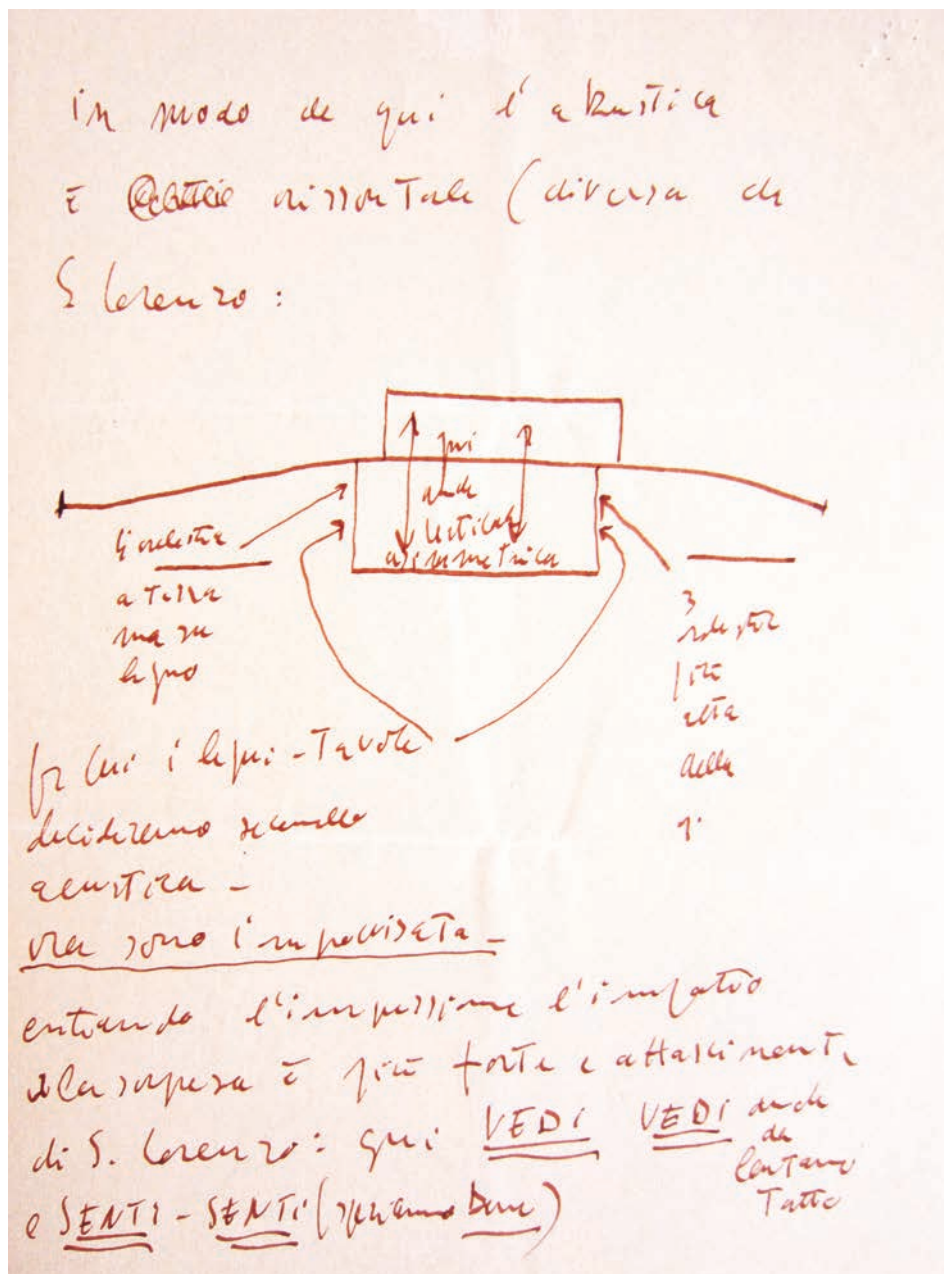 in modo che qui l'akustica
è orizzontale (diversa da
S Lorenzo:
qui
anche
verticale
asimmetrica
1ª orchestra
a terra
ma su
legno
3
orchestra
più
alta
della
1.
per cui i legni-Tavole
decideremo secondo
acustica -
ora sono improvvisata -
entrando l'impressione l'impatto
la sorpresa è più forte e affascinante
di S. Lorenzo: qui VEDI VEDI anche
da
lontano
Tutto
e SENTI - SENTI (speriamo bene)